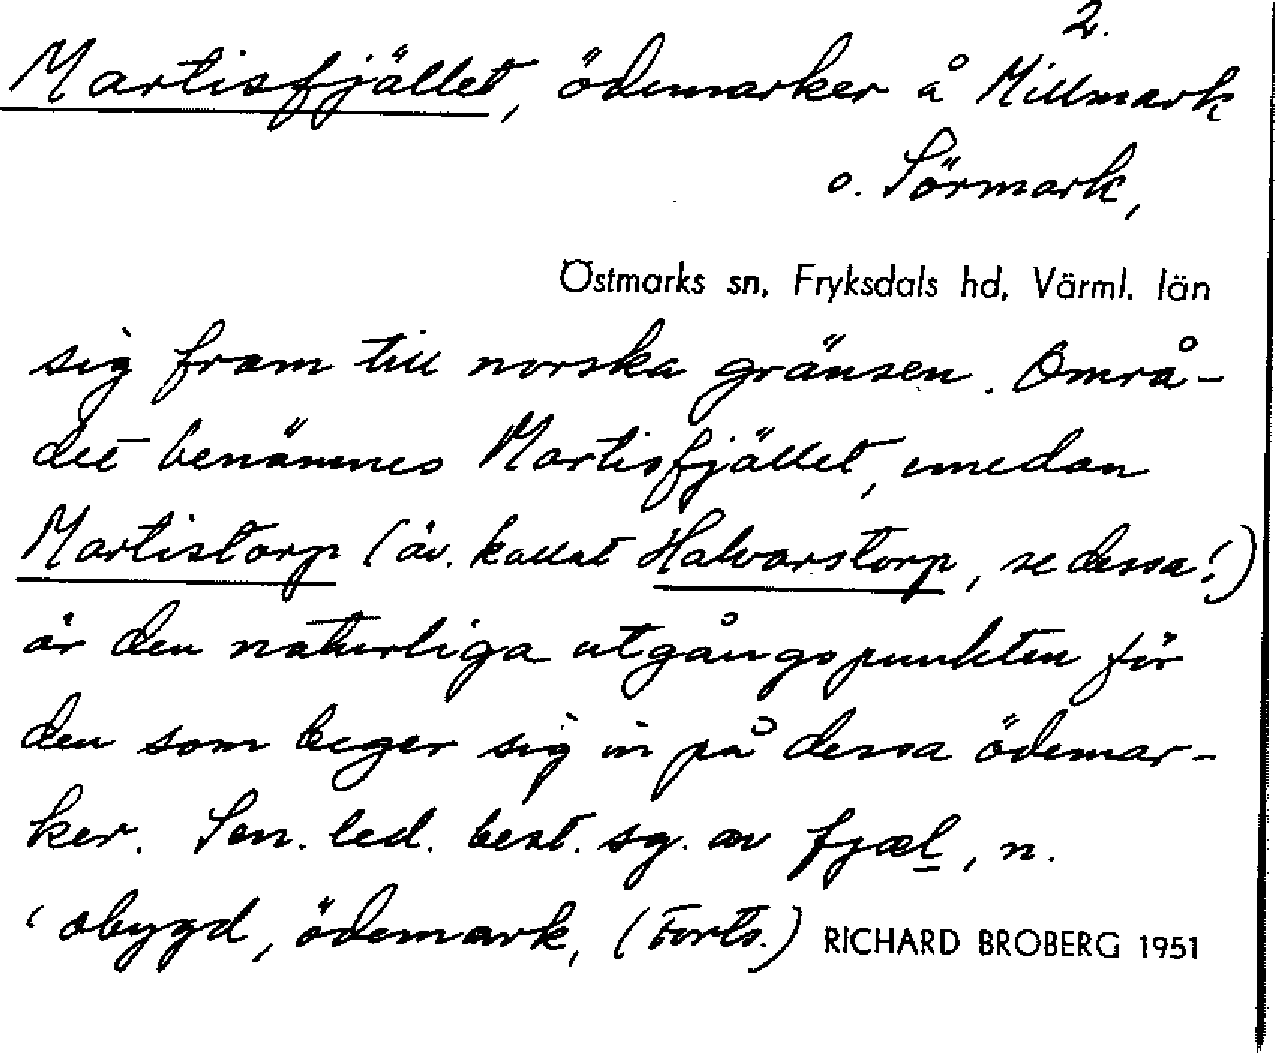 2.
Martisfjället, ödemarker å Millmark
o. Sörmark,
Östmarks sn, Fryksdals hd, Värml. län
sig fram till norska gränsen. Områ-
det benämnes Martisfjället, emedan
Martistorp (äv. kallat Halvarstorp, se dessa!)
är den naturliga utgångspunkten för
den som beger sig in på dessa ödemar-
ker. Sen. led. best. sg. av fjæl, n.
'obygd, ödemark, (Forts.) RICHARD BROBERG 1951